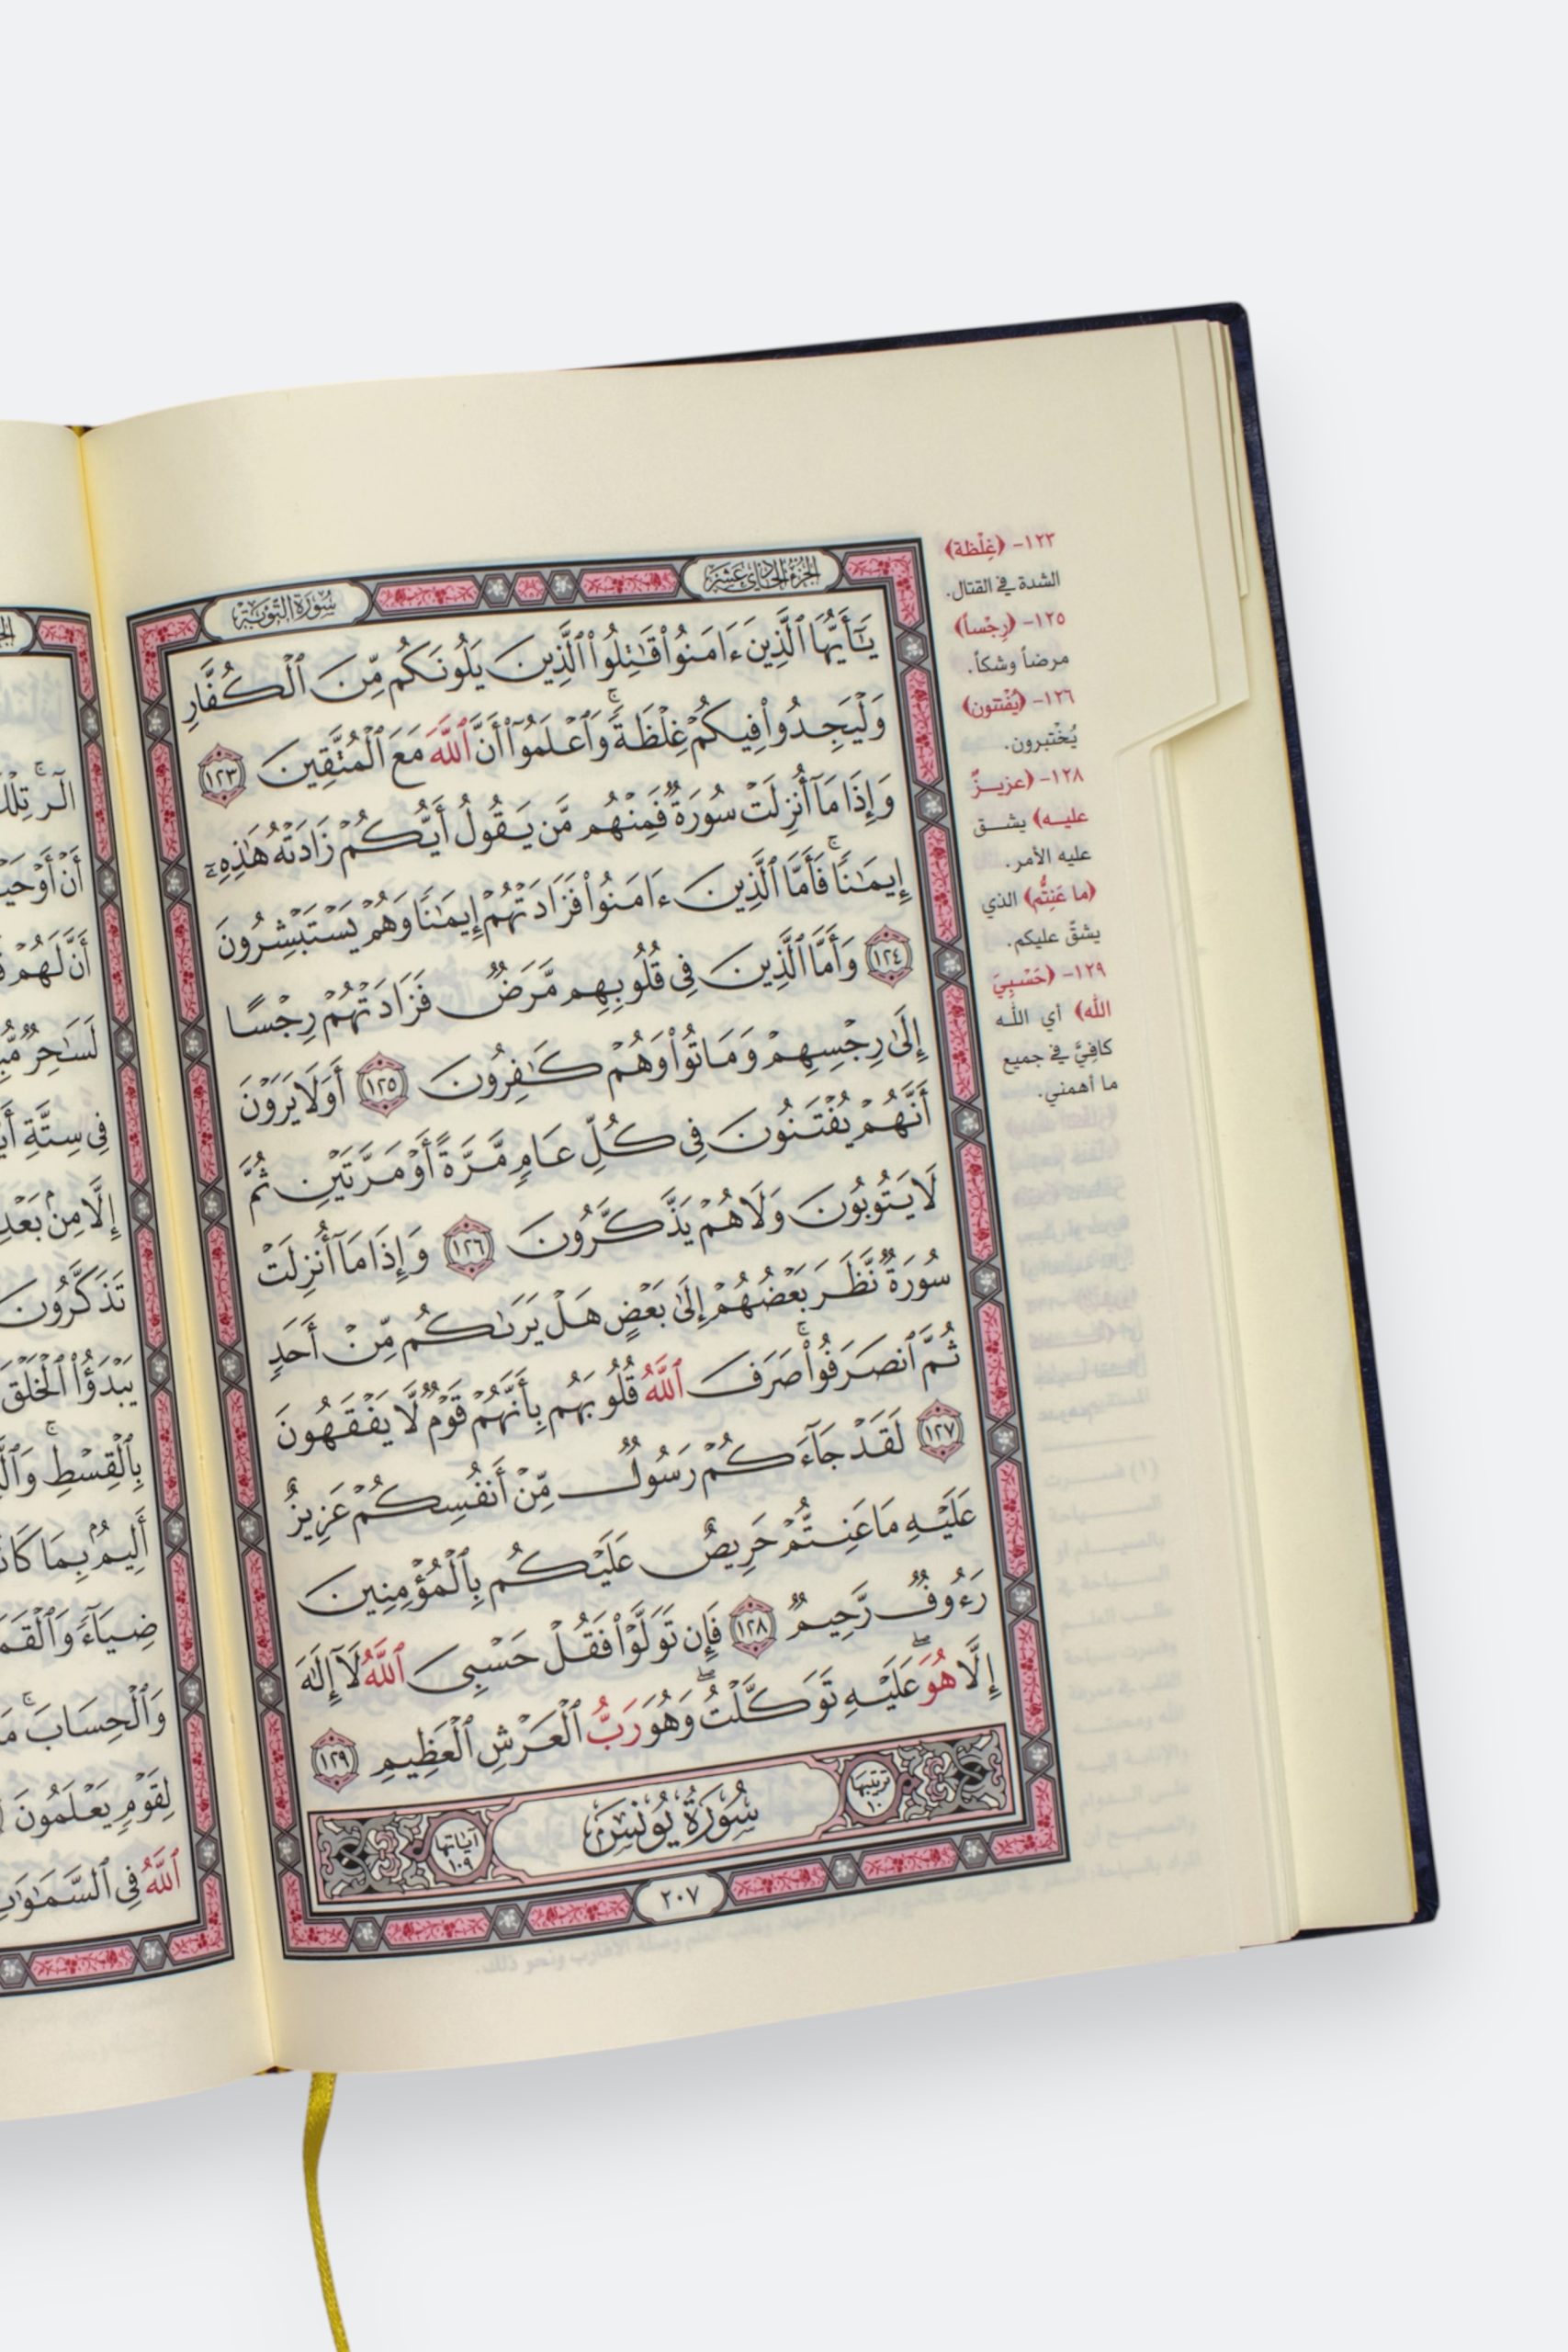 الجزء الحادي عشر
سورة التوبة
يَٰٓأَيُّهَا ٱلَّذِينَ ءَامَنُوا۟ قَٰتِلُوا۟ ٱلَّذِينَ يَلُونَكُم مِّنَ ٱلْكُفَّارِ
وَلْيَجِدُوا۟ فِيكُمْ غِلْظَةً ۚ وَٱعْلَمُوٓا۟ أَنَّ ٱللَّهَ مَعَ ٱلْمُتَّقِينَ ١٢٣
وَإِذَا مَآ أُنزِلَتْ سُورَةٌ فَمِنْهُم مَّن يَقُولُ أَيُّكُمْ زَادَتْهُ هَٰذِهِۦٓ
إِيمَٰنًا ۚ فَأَمَّا ٱلَّذِينَ ءَامَنُوا۟ فَزَادَتْهُمْ إِيمَٰنًا وَهُمْ يَسْتَبْشِرُونَ
١٢٤ وَأَمَّا ٱلَّذِينَ فِى قُلُوبِهِم مَّرَضٌ فَزَادَتْهُمْ رِجْسًا
إِلَىٰ رِجْسِهِمْ وَمَاتُوا۟ وَهُمْ كَٰفِرُونَ ١٢٥ أَوَلَا يَرَوْنَ
أَنَّهُمْ يُفْتَنُونَ فِى كُلِّ عَامٍ مَّرَّةً أَوْ مَرَّتَيْنِ ثُمَّ
لَا يَتُوبُونَ وَلَا هُمْ يَذَّكَّرُونَ ١٢٦ وَإِذَا مَآ أُنزِلَتْ
سُورَةٌ نَّظَرَ بَعْضُهُمْ إِلَىٰ بَعْضٍ هَلْ يَرَىٰكُم مِّنْ أَحَدٍ
ثُمَّ ٱنصَرَفُوا۟ ۚ صَرَفَ ٱللَّهُ قُلُوبَهُم بِأَنَّهُمْ قَوْمٌ لَّا يَفْقَهُونَ
١٢٧ لَقَدْ جَآءَكُمْ رَسُولٌ مِّنْ أَنفُسِكُمْ عَزِيزٌ
عَلَيْهِ مَا عَنِتُّمْ حَرِيصٌ عَلَيْكُم بِٱلْمُؤْمِنِينَ
رَءُوفٌ رَّحِيمٌ ١٢٨ فَإِن تَوَلَّوْا۟ فَقُلْ حَسْبِىَ ٱللَّهُ لَآ إِلَٰهَ
إِلَّا هُوَ ۖ عَلَيْهِ تَوَكَّلْتُ ۖ وَهُوَ رَبُّ ٱلْعَرْشِ ٱلْعَظِيمِ ١٢٩
ترتيبها
١٠
سُورَةُ يُونُسَ
آياتها
١٠٩
٢٠٧
١٢٣- ﴿غِلْظة﴾
الشدة في القتال.
١٢٥- ﴿رِجْساً﴾
مرضاً وشكاً.
١٢٦- ﴿يُفْتنون﴾
يُخْتبرون.
١٢٨- ﴿عزيزٌ
عليه﴾ يشق
عليه الأمر.
﴿ما عَنِتُّم﴾ الذي
يشقّ عليكم.
١٢٩- ﴿حَسْبِيَ
الله﴾ أي الله
كافيَّ في جميع
ما أهمني.
الٓر ۚ تِلْكَ
أَنْ أَوْحَيْنَا
أَنَّ لَهُمْ
لَسَٰحِرٌ
فِى سِتَّةِ
إِلَّا مِنۢ بَعْدِ
تَذَكَّرُونَ
يَبْدَؤُا۟ ٱلْخَلْقَ
بِٱلْقِسْطِ ۚ
أَلِيمٌۢ بِمَا
ضِيَآءً وَٱلْقَمَرَ
وَٱلْحِسَابَ ۚ
لِقَوْمٍ يَعْلَمُونَ
ٱللَّهُ فِى ٱلسَّمَٰوَٰتِ